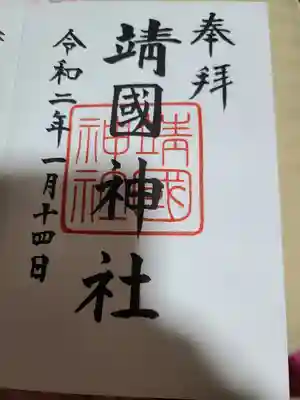 奉拝
靖國神社
靖國
神社
令和二年一月十四日